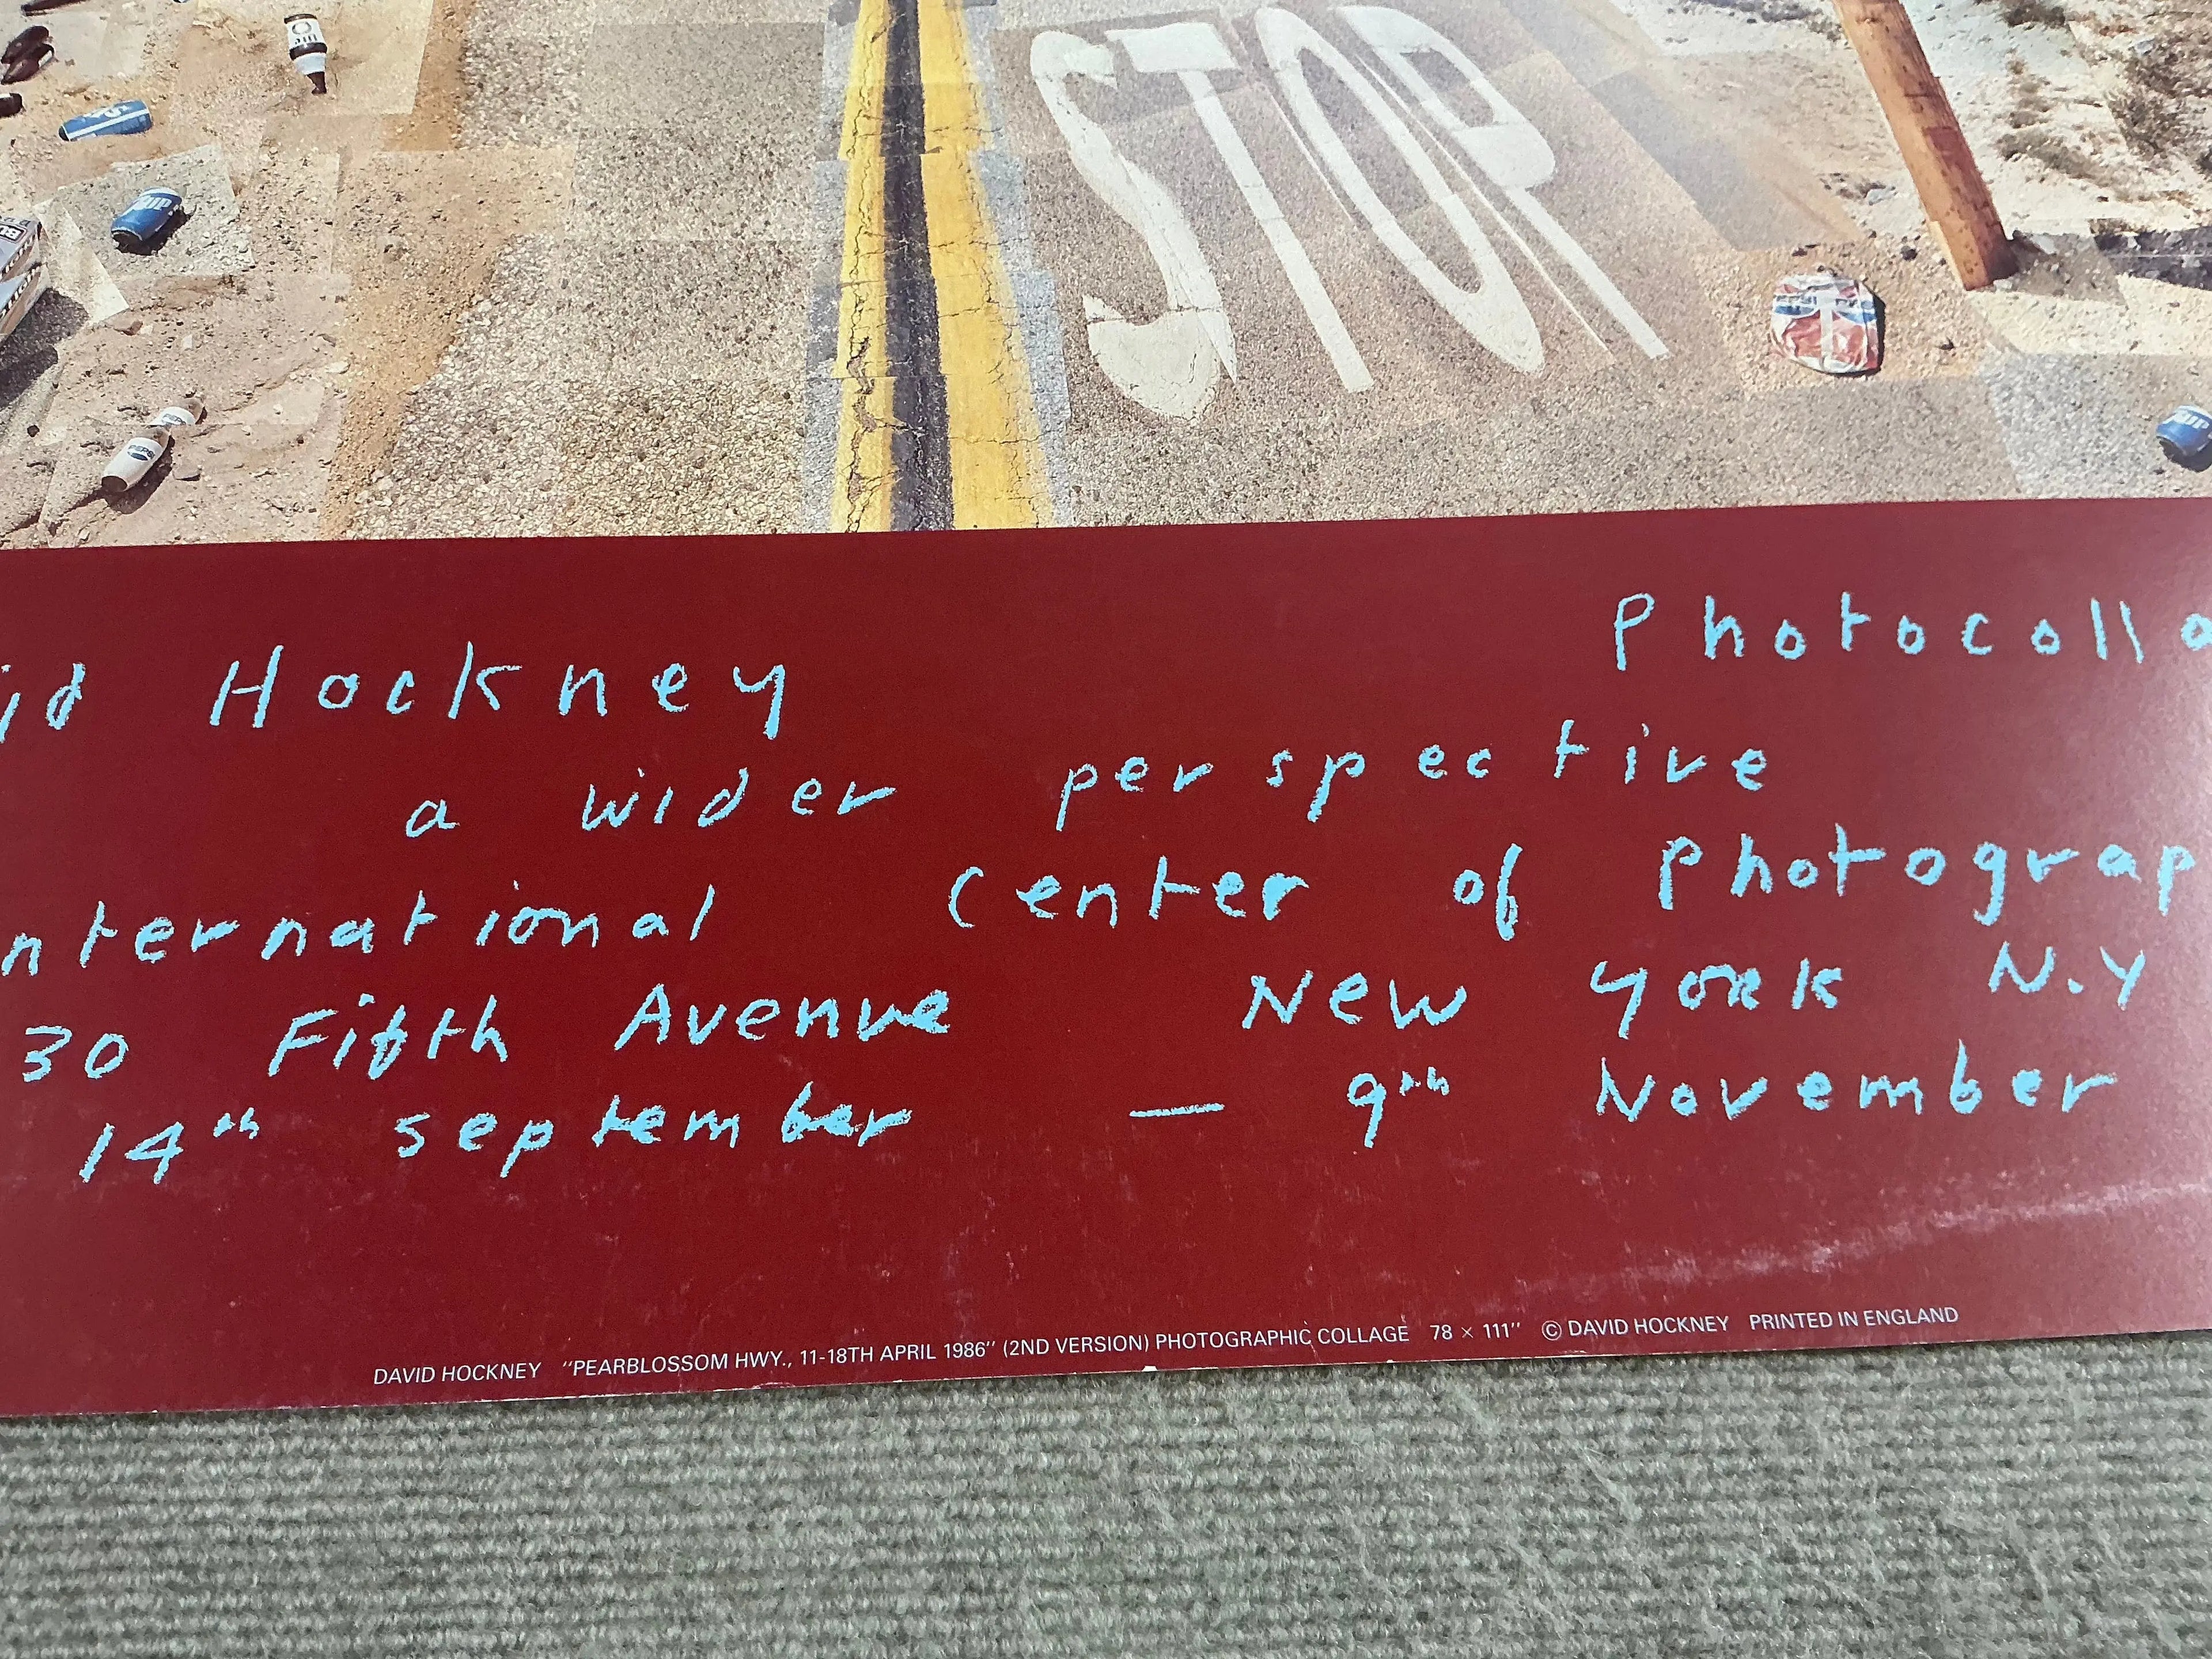 lite
STOP
PEPSI
id Hockney Photocolla
a wider perspective
nternational Center of Photograp
30 Fifth Avenue New York N.Y
14th september — 9th November
DAVID HOCKNEY "PEARBLOSSOM HWY., 11-18TH APRIL 1986" (2ND VERSION) PHOTOGRAPHIC COLLAGE 78 × 111" © DAVID HOCKNEY PRINTED IN ENGLAND